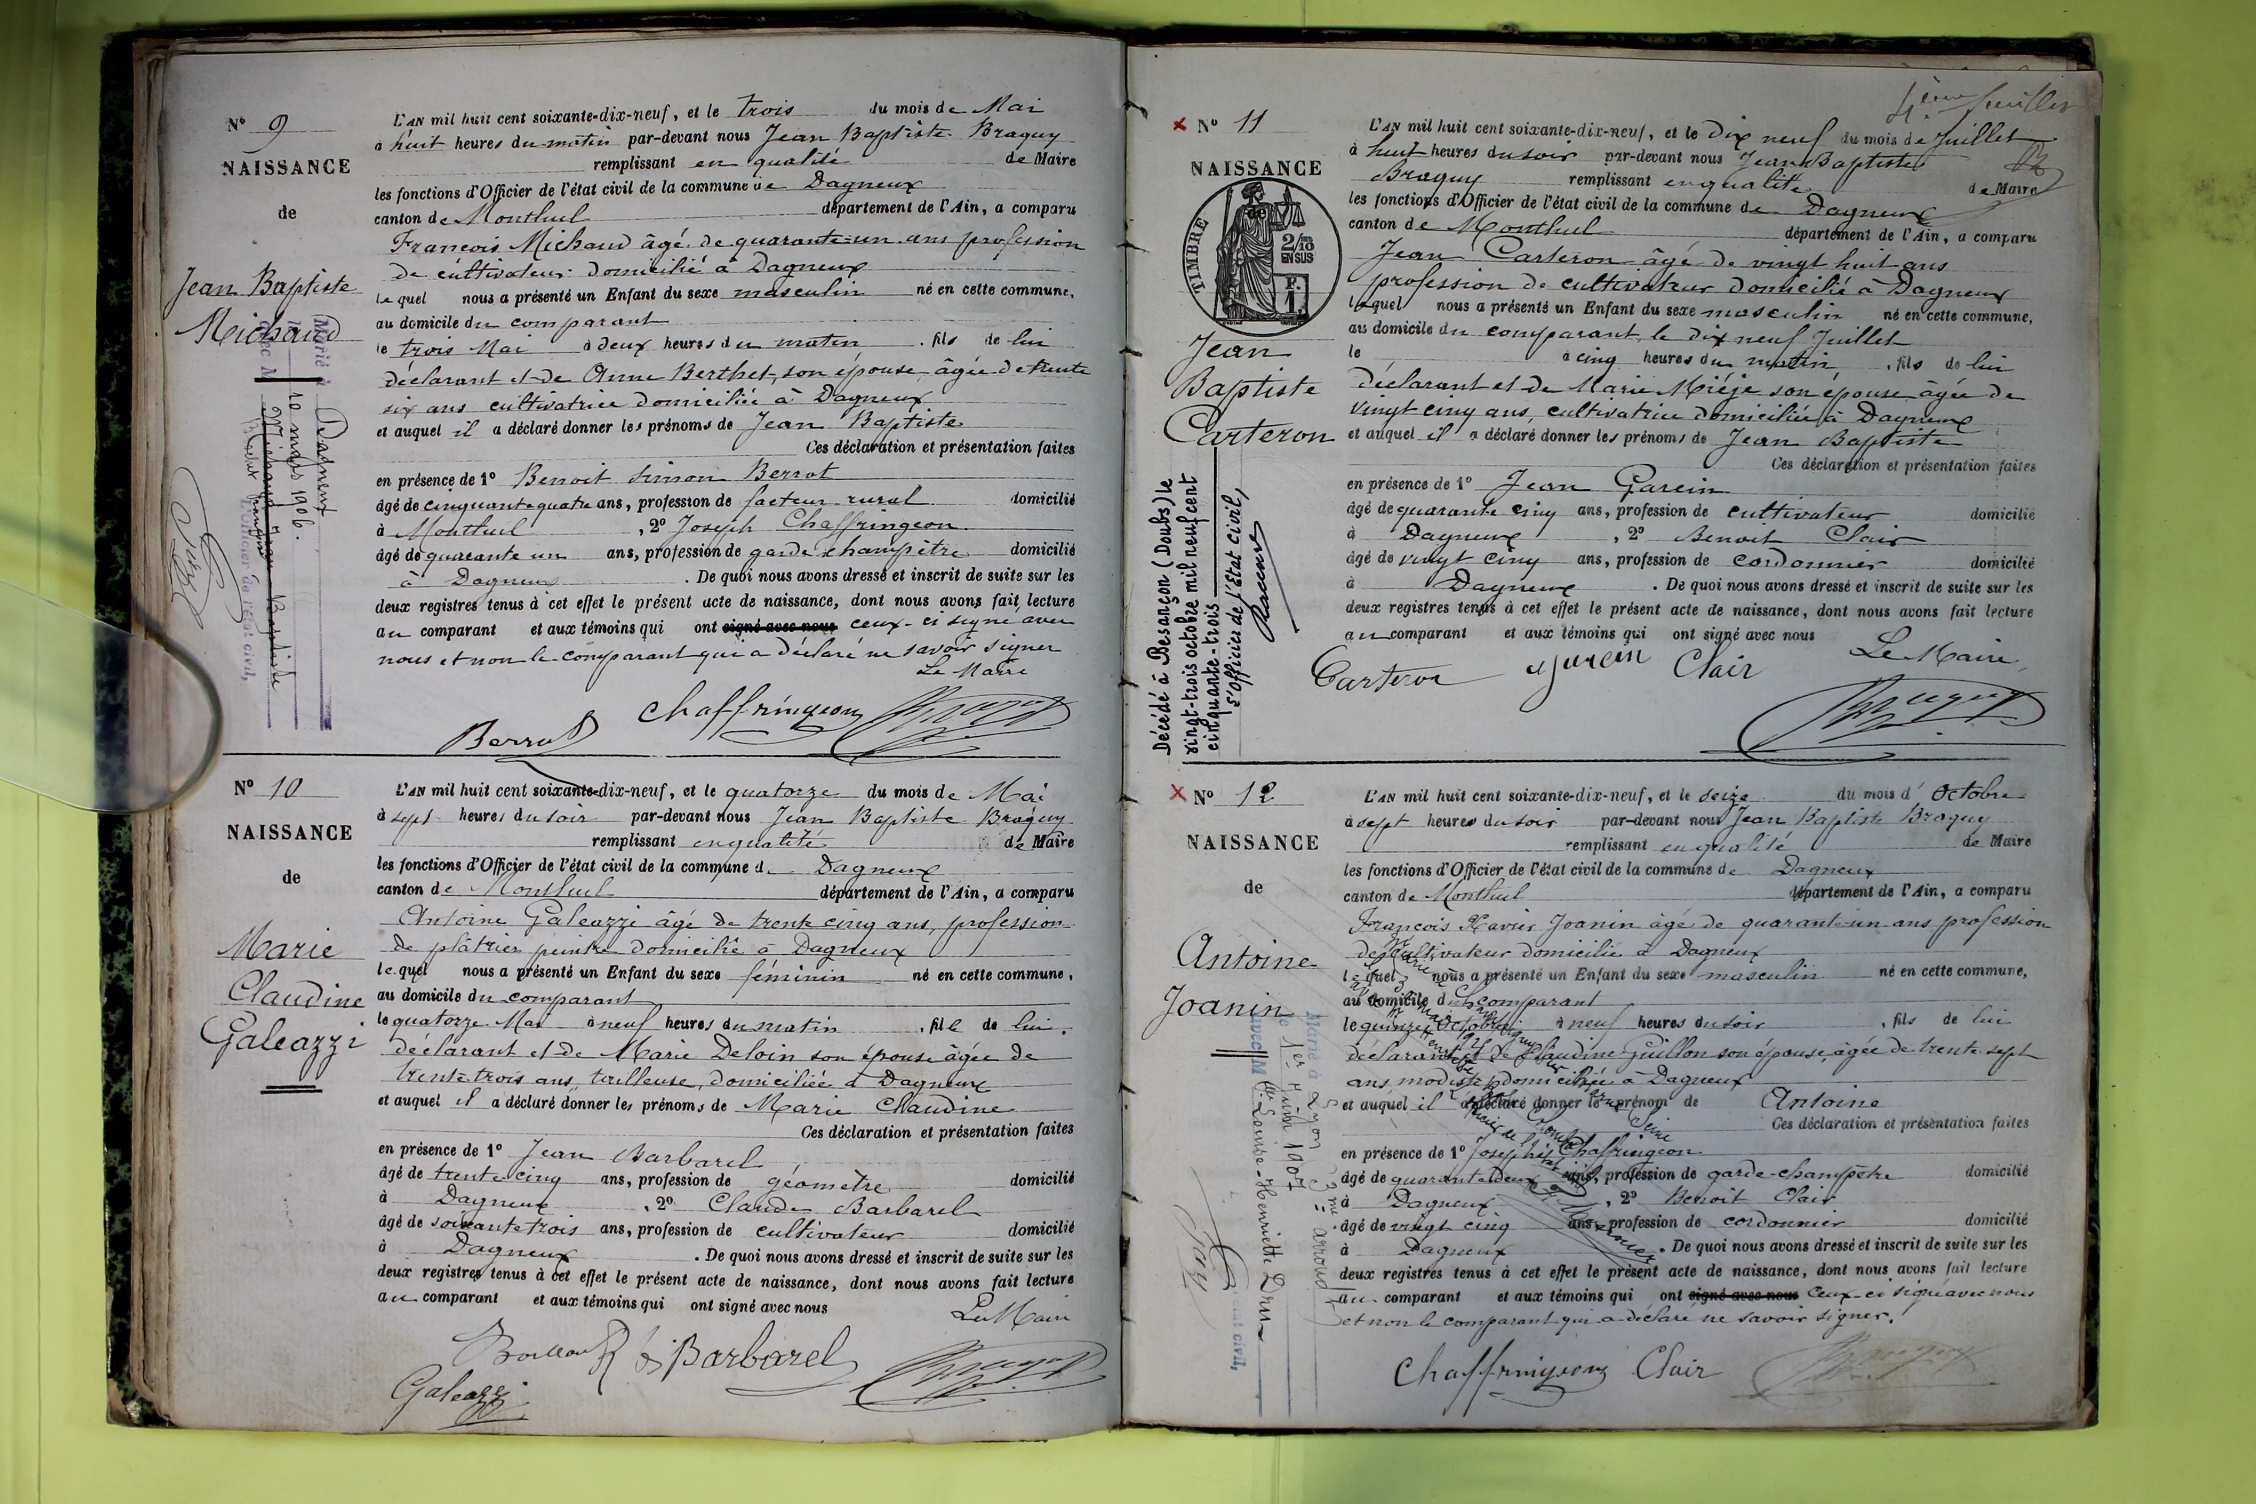 N° 9
NAISSANCE
de
Jean Baptiste
Michaud
L'AN mil huit cent soixante-dix-neuf, et le trois du mois de Mai
à huit heures du matin par-devant nous Jean Baptiste Braguy
remplissant en qualité de Maire
les fonctions d'Officier de l'état civil de la commune de Dagneux
canton de Montluel département de l'Ain, a comparu
François Michaud âgé de quarante-un ans profession
de cultivateur domicilié à Dagneux
lequel nous a présenté un Enfant du sexe masculin né en cette commune,
au domicile du comparant
le trois Mai à deux heures du matin . fils de lui
déclarant et de Anne Berthet, son épouse, âgée de trente
six ans cultivatrice domiciliée à Dagneux
et auquel il a déclaré donner les prénoms de Jean Baptiste
Ces déclaration et présentation faites
en présence de 1° Benoit Simon Berrot
âgé de cinquante quatre ans, profession de facteur rural domicilié
à Montluel , 2° Joseph Chaffringeon
âgé de quarante un ans, profession de garde champêtre domicilié
à Dagneux . De quoi nous avons dressé et inscrit de suite sur les
deux registres tenus à cet effet le présent acte de naissance, dont nous avons fait lecture
au comparant et aux témoins qui ont signé avec nous ceux-ci signé avec
nous et non le comparant qui a déclaré ne savoir signer
Le Maire
Chaffringeon
Berrot
Marié à Dagneux
10 mars 1906
l'Officier de l'état civil,
N° 10
NAISSANCE
de
Marie
Claudine
Galeazzi
L'AN mil huit cent soixante-dix-neuf, et le quatorze du mois de Mai
à sept heures du soir par-devant nous Jean Baptiste Braguy
remplissant en qualité de Maire
les fonctions d'Officier de l'état civil de la commune de Dagneux
canton de Montluel département de l'Ain, a comparu
Antoine Galeazzi âgé de trente cinq ans, profession
de plâtrier peintre domicilié à Dagneux
lequel nous a présenté un Enfant du sexe féminin né en cette commune,
au domicile du comparant
le quatorze Mai à neuf heures du matin . fille de lui
déclarant et de Marie Deloin son épouse âgée de
trente-trois ans, tailleuse, domiciliée à Dagneux
et auquel il a déclaré donner les prénoms de Marie Claudine
Ces déclaration et présentation faites
en présence de 1° Jean Barbarel
âgé de trente cinq ans, profession de géomètre domicilié
à Dagneux , 2° Claude Barbarel
âgé de soixante trois ans, profession de cultivateur domicilié
à Dagneux . De quoi nous avons dressé et inscrit de suite sur les
deux registres tenus à cet effet le présent acte de naissance, dont nous avons fait lecture
au comparant et aux témoins qui ont signé avec nous
Le Maire
Barbarel
Galeazzi
4ème feuillet
N° 11
NAISSANCE
de
TIMBRE
2/10 EN SUS
Jean
Baptiste
Carteron
L'AN mil huit cent soixante-dix-neuf, et le dix neuf du mois de Juillet
à huit heures du soir par-devant nous Jean Baptiste
Braguy remplissant en qualité de Maire
les fonctions d'Officier de l'état civil de la commune de Dagneux
canton de Montluel département de l'Ain, a comparu
Jean Carteron âgé de vingt huit ans
profession de cultivateur domicilié à Dagneux
lequel nous a présenté un Enfant du sexe masculin né en cette commune,
au domicile du comparant, le dix neuf Juillet
le à cinq heures du matin . fils de lui
déclarant et de Marie Miége son épouse âgée de
vingt cinq ans, cultivatrice domiciliée à Dagneux
et auquel il a déclaré donner les prénoms de Jean Baptiste
Ces déclaration et présentation faites
en présence de 1° Jean Garein
âgé de quarante cinq ans, profession de cultivateur domicilié
à Dagneux , 2° Benoit Clair
âgé de vingt cinq ans, profession de cordonnier domicilié
à Dagneux . De quoi nous avons dressé et inscrit de suite sur les
deux registres tenus à cet effet le présent acte de naissance, dont nous avons fait lecture
au comparant et aux témoins qui ont signé avec nous
Le Maire
Carteron Clair
Décédé à Besançon (Doubs) le
vingt-trois octobre mil neuf cent
cinquante-trois
L'officier de l'Etat civil,
N° 12
NAISSANCE
de
Antoine
Joanin
L'AN mil huit cent soixante-dix-neuf, et le seize du mois d'Octobre
à sept heures du soir par-devant nous Jean Baptiste Braguy
remplissant en qualité de Maire
les fonctions d'Officier de l'état civil de la commune de Dagneux
canton de Montluel département de l'Ain, a comparu
François Xavier Joanin âgé de quarante-un ans profession
de cultivateur domicilié à Dagneux
lequel nous a présenté un Enfant du sexe masculin né en cette commune,
au domicile du comparant
le quinze Octobre à neuf heures du soir . fils de lui
déclarant et de Claudine Guillon son épouse, âgée de trente-sept
ans modiste domiciliée à Dagneux
et auquel il a déclaré donner le prénom de Antoine
Ces déclaration et présentation faites
en présence de 1° Joseph Chaffringeon
âgé de quarante deux ans, profession de garde-champêtre domicilié
à Dagneux , 2° Benoit Clair
âgé de vingt cinq ans, profession de cordonnier domicilié
à Dagneux . De quoi nous avons dressé et inscrit de suite sur les
deux registres tenus à cet effet le présent acte de naissance, dont nous avons fait lecture
au comparant et aux témoins qui ont signé avec nous ceux-ci signé avec nous
et non le comparant qui a déclaré ne savoir signer.
Chaffringeon Clair
Marié à Lyon 3me arrond.
le 1er Juin 1907
avec Mlle Louise-Henriette Drin